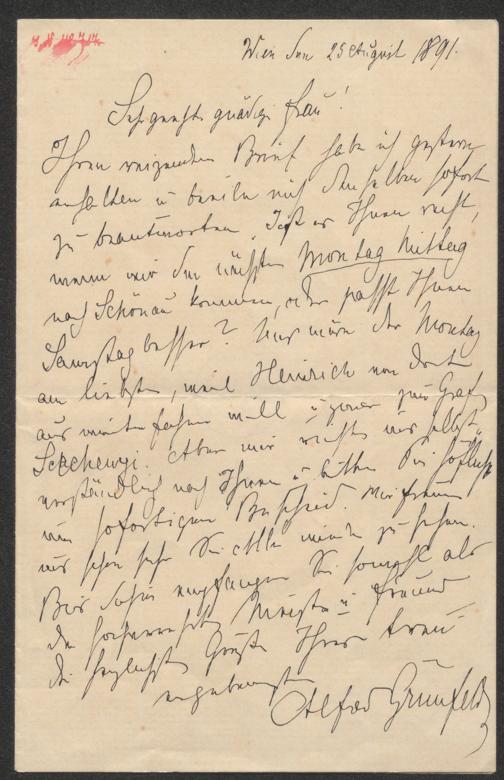 Wien den 25 August 1891.
Sehr geehrte gnädige Frau!
Ihren reizenden Brief habe ich gestern
erhalten u beeile mich denselben sofort
zu beantworten. Ist es Ihnen recht,
wenn wir den nächsten Montag Mittag
nach Schönau kommen, oder paßt Ihnen
Samstag besser? Uns wäre der Montag
am liebsten, weil Heinrich von dort
aus weiter fahren will u zwar zum Graf
Szechenyi. Aber wir richten uns selbst-
verständlich nach Ihnen u bitten Sie höflichst
um sofortigen Bescheid. Wir freuen
uns schon sehr Sie Alle wieder zu sehen.
Bis dahin empfangen Sie sowohl als
der hochverehrte Meister u Freund
die herzlichsten Grüße Ihres treu
ergebensten
Alfred Grünfeld